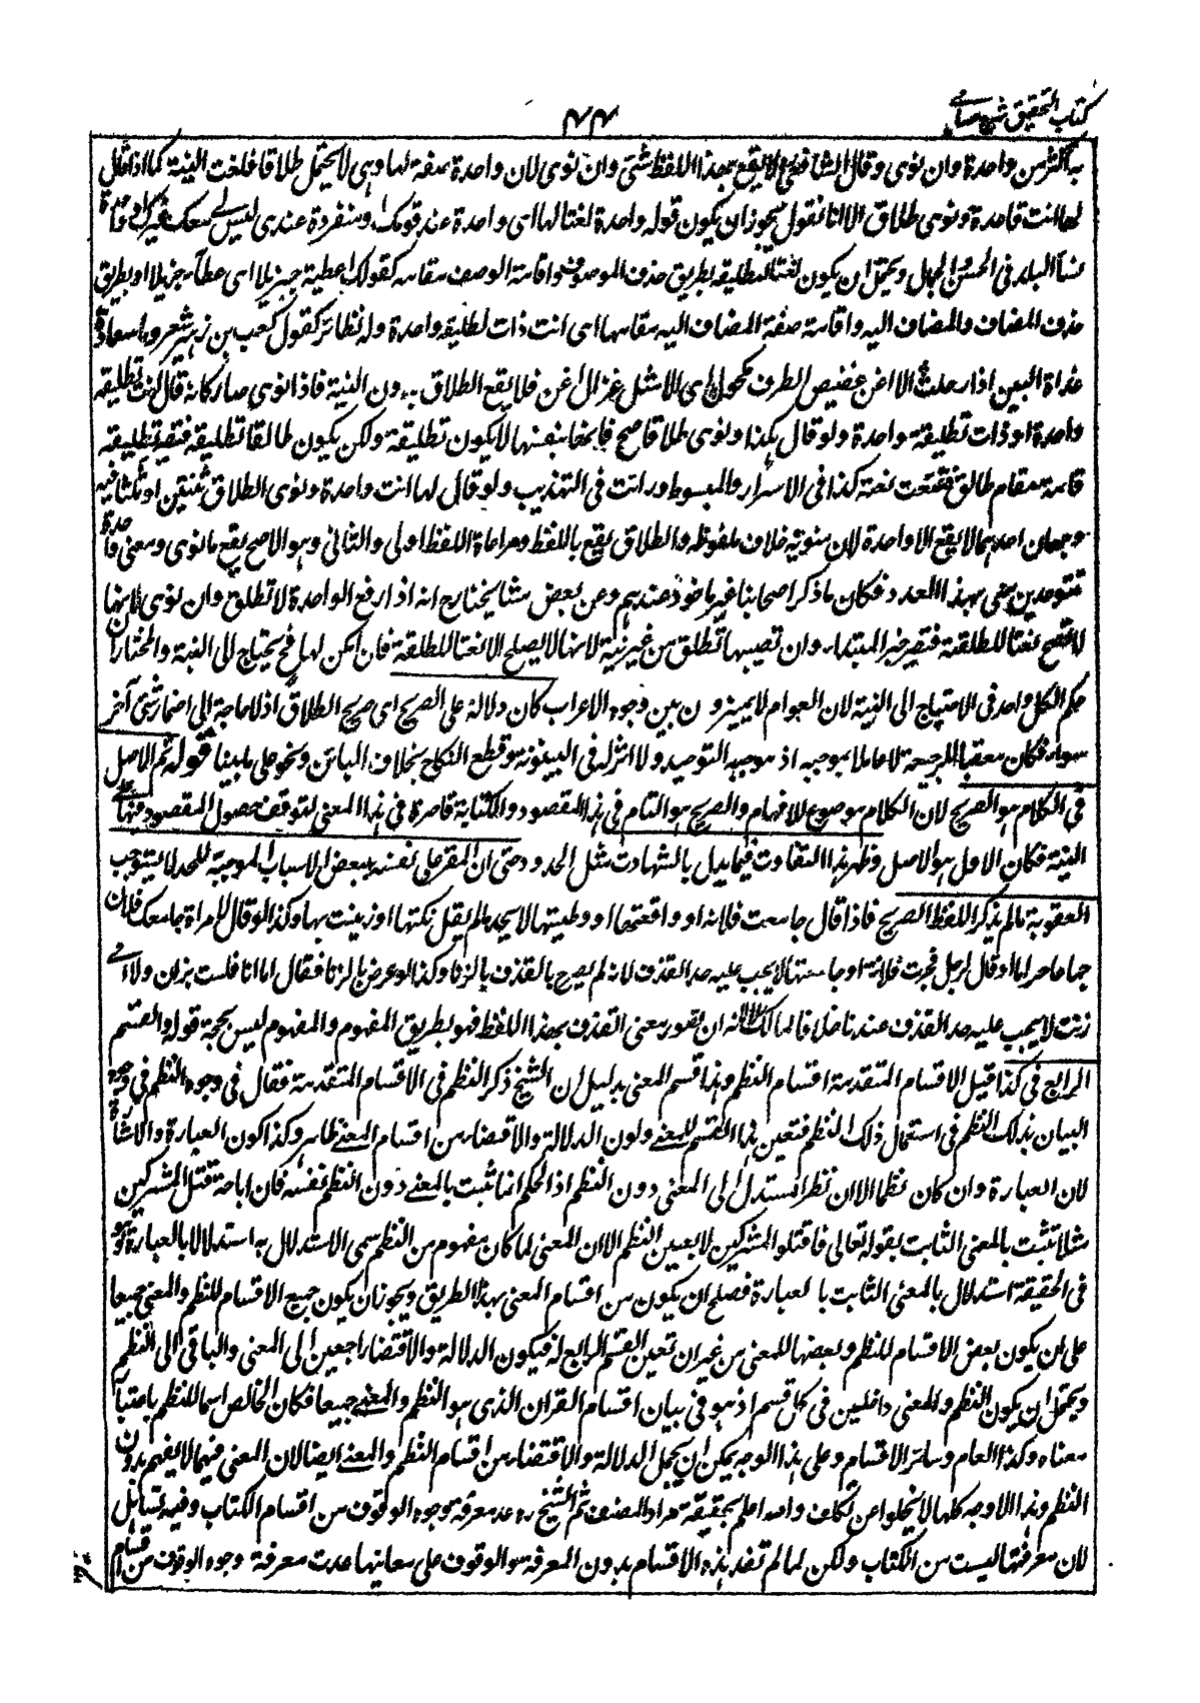 كتاب التحقيق شرح حسامي
٤٤
به اكثر من واحدة وان نوى وقال الشافعي لا يقع بهذا اللفظ شئ وان نوى لان واحدة صفة لها وهي لا يحتمل طلاقا فلغت النية كما اذا قال
لها انت قاعدة ونوى طلاق الا انا نقول يجوز ان يكون قوله واحدة نعتا لها اى واحدة عند قومك او منفردة عندى ليس لى معك غيرك او واحدة
نساء البلد فى الحسن والجمال ويحتمل ان يكون نعتا لتطليقة بطريق حذف الموصوف واقامة الوصف مقامه كقولك اعطيته جزيلا اى عطاء جزيلا او بطريق
حذف المضاف والمضاف اليه واقامة صفة المضاف اليه مقامها اى انت ذات تطليقة واحدة وله نظائر كقول كعب بن زهير شعر وما سعاد
غداة البين اذ رحلت الا اغن غضيض الطرف مكحول اى الا مثل غزال اغن فلا يقع الطلاق بدون النية فاذا نوى صار كانه قال انت تطليقة
واحدة او ذات تطليقة واحدة ولو قال هكذا ونوى طلاقا صح فانها بنفسها لا يكون تطليقة ولكن يكون طالقا تطليقة فتصير تطليقة
قائمة مقام طالق فتقعت نعته كذا فى الاسرار والمبسوط ورايت فى التهذيب ولو قال لها انت واحدة ونوى الطلاق ثنتين او ثلثا فيه
وجهان احدهما لا يقع الا واحدة لان منويه خلاف ملفوظه والطلاق يقع باللفظ ومراعاة اللفظ اولى والثانى وهو الاصح يقع ما نوى ومعنى واحدة
تتوحدين منى بهذا العدد فكان ما ذكر اصحابنا غير ماخوذ عندهم وعن بعض مشايخنا رح انه اذا رفع الواحدة لا تطلق وان نوى لانها
لا تصلح نعتا للطلقة فتصير خبر المبتداء وان نصبها تطلق من غير نية لانها لا يصلح الا نعتا للطلقة فان سكن لها فح يحتاج الى النية والمختار ان
حكم الكل واحد فى الاحتياج الى النية لان العوام لا يميزون بين وجوه الاعراب كان دلالة على الصريح اى صريح الطلاق اذ لا حاجة الى اضمار شئ آخر
سواه فكان معقبا للرجعة لا عاملا بموجبه اذ موجبه التوحيد ولا اثر له فى البينونة وقطع النكاح بخلاف البائن ونحوه على ما بينا قوله ثم الاصل
فى الكلام هو الصريح لان الكلام موضوع للافهام والصريح هو التام فى هذا المقصود والكناية قاصرة فى هذا المعنى لتوقف حصول المقصود منها على
النية فكان الاول هو الاصل وظهر هذا التفاوت فيما يدرا بالشبهات مثل الحدود حتى ان المقر على نفسه ببعض الاسباب الموجبة للحد لا يستوجب
العقوبة ما لم يذكر اللفظ الصريح فاذا قال جامعت فلانة او واقعتها او وطيتها لا يحد ما لم يقل نكتها او زنيت بها وكذا لو قال لامراة جامعك فلان
جماعا حراما او قال لرجل فجرت بفلانة او جامعتها لا يجب عليه حد القذف لانه لم يصرح بالقذف بالزنا وكذا لو عرض بالزنا فقال اما انا فلست بزان ولا امى
زنت لا يجب عليه حد القذف عندنا خلافا لمالك لانه ان تصور معنى القذف بهذا اللفظ فهو بطريق المفهوم والمفهوم ليس بحجة قوله والقسم
الرابع فى كذا قيل الاقسام المتقدمة اقسام النظم وهذا قسم المعنى بدليل ان الشيخ ذكر النظم فى الاقسام المتقدمة فقال فى وجوه النظم فى وجوه
البيان بذلك النظم فى استعمال ذلك النظم فتعين هذا القسم للمعنى وكون الدلالة والاقتضاء من اقسام المعنى ظاهر وكذا كون العبارة والاشارة
لان العبارة وان كان نظما الا ان نظر المستدل الى المعنى دون النظم اذ الحكم انما ثبت بالمعنى دون النظم نفسه فان اباحة قتل المشركين
مثلا تثبت بالمعنى الثابت بقوله تعالى فاقتلوا المشركين لا بعين النظم الا ان المعنى لما كان مفهوم من النظم سمى الاستدلال به استدلالا بالعبارة وهو
فى الحقيقة استدلال بالمعنى الثابت بالعبارة فصلح ان يكون من اقسام المعنى بهذا الطريق ويجوز ان يكون جميع الاقسام للنظم والمعنى جميعا
على ان يكون بعض الاقسام للنظم وبعضها للمعنى من غير ان تعين القسم الرابع له فيكون الدلالة والاقتضاء راجعين الى المعنى والباقى الى النظم
ويحتمل ان يكون النظم والمعنى داخلين فى كل قسم اذ هو فى بيان اقسام القرآن الذى هو النظم والمعنى جميعا فكان الخاص اسما للنظم باعتبار
معناه وكذا العام وسائر الاقسام وعلى هذا الوجه يمكن ان يجعل الدلالة والاقتضاء من اقسام النظم والمعنى ايضا لان المعنى فيهما لا يفهم بدون
النظم وهذه الاوجه كلها لا يخلوا عن تكلف والله اعلم بحقيقة مراد المصنف ثم الشيخ ره عد معرفة وجوه الوقوف من اقسام الكتاب وفيه تساهل
لان معرفتها ليست من الكتاب ولكن لما لم تفد هذه الاقسام بدون المعرفة والوقوف على معانيها عدت معرفة وجوه الوقوف من اقسام